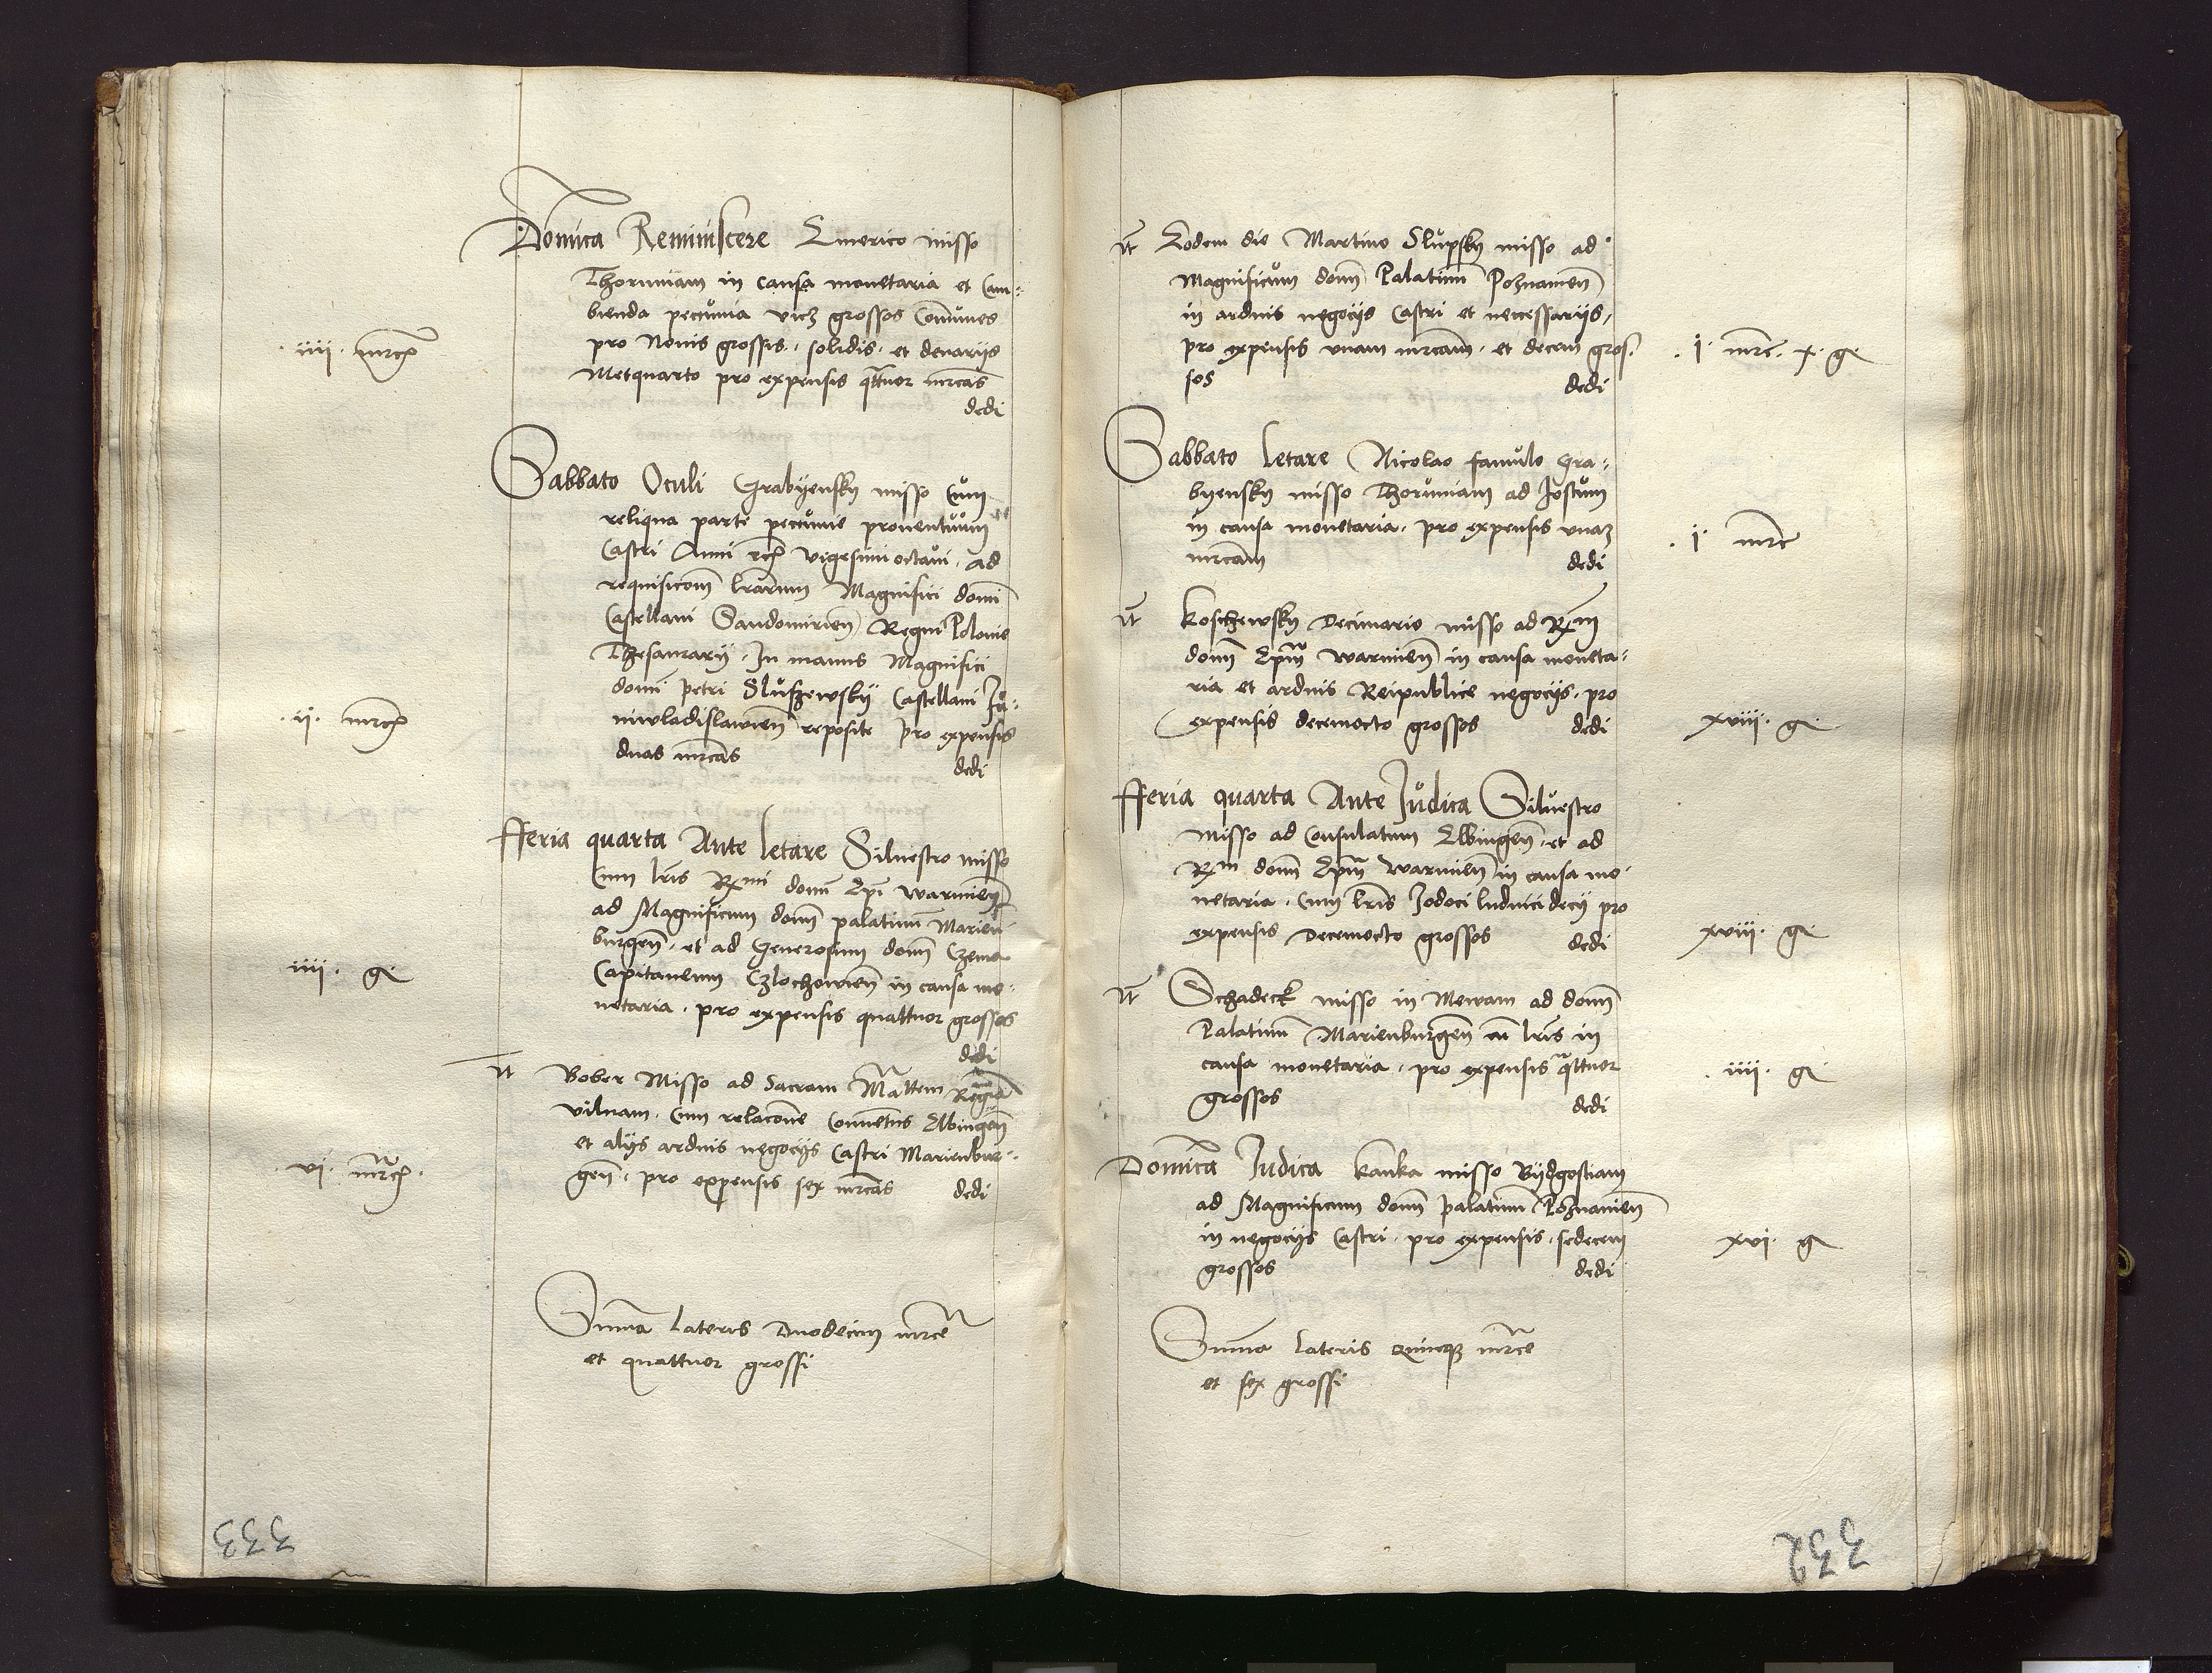 Domica Reminiscere Emerico misso
Thoruniam in causa monetaria et Cam-
bienda pecunia vicz grossos Comunes
pro Novis grossis, solidis, et denarijs
Metquarto pro expensis qttuor mrcas
dedi
. iiii . mrc
Sabbato Oculi Grabyensky misso Cum
reliqua parte pecunie proventuum
Castri Anni vigesimi octavi, ad
requisicom lrarum Magnifici domi
Castellani Sandomirien Regni Polonie
Thesaurarij, In manus Magnifici
domi petri Sluszewskij Castellani Ju-
niwladislavien reposite pro expensis
duas mrcas
dedi
. ii . mrc
fferia quarta Ante letare Silvestro misso
Cum lris Rmi domi Epi warmien
ad Magnificum dom palatinu Marien
burgen, et ad Generosum dom Czema
Capitaneum Czlochowien in causa mo-
netaria, pro expensis quattuor grossos
dedi
iiii . g
It Bober Misso ad Sacram Mattem Regia
vilnam, Cum relacone Conventus Elbingen
et alijs arduis negocijs Castri Marienbur-
gen, pro expensis sex mrcas dedi
. vi . mrc .
Summa lateris Duodecim mrce
et quattuor grossi
333
It Eodem die Martino Slupsky misso ad
Magnificum dom Palatinu Poznanien
in arduis negocijs Castri et necessarijs,
pro expensis unam mrcam, et decem gros-
sos dedi
. i . mrc . x . g .
Sabbato letare Nicolao famulo Gra-
byensky misso Thoruniam ad Jostum
in causa monetaria, pro expensis unaz
mrcam dedi
. i . mrc
It Koschewsky Decimario misso ad Rm
dom Epm warmien in causa moneta-
ria et arduis Reipublice negocijs, pro
expensis decemocto grossos dedi
xviii . g .
fferia quarta Ante Judica Silvestro
misso ad Consulatum Elbingen, et ad
Rm dom Epm warmien in causa mo-
netaria, Cum lris Jodoci ludvici decij pro
expensis Decemocto grossos dedi
xviii . g .
It Schadeck misso in Mewam ad dom
Palatinu Marienburgen cu lris in
causa monetaria, pro expensis qttuor
grossos dedi
. iiii . g
Domica Judica Kanka misso Bijdgostiam
ad Magnificum dom palatinu Poznanien
in negocijs Castri, pro expensis, sedecem
grossos dedi
xvi . g
Summa lateris quinqz mrce
et sex grossi
332